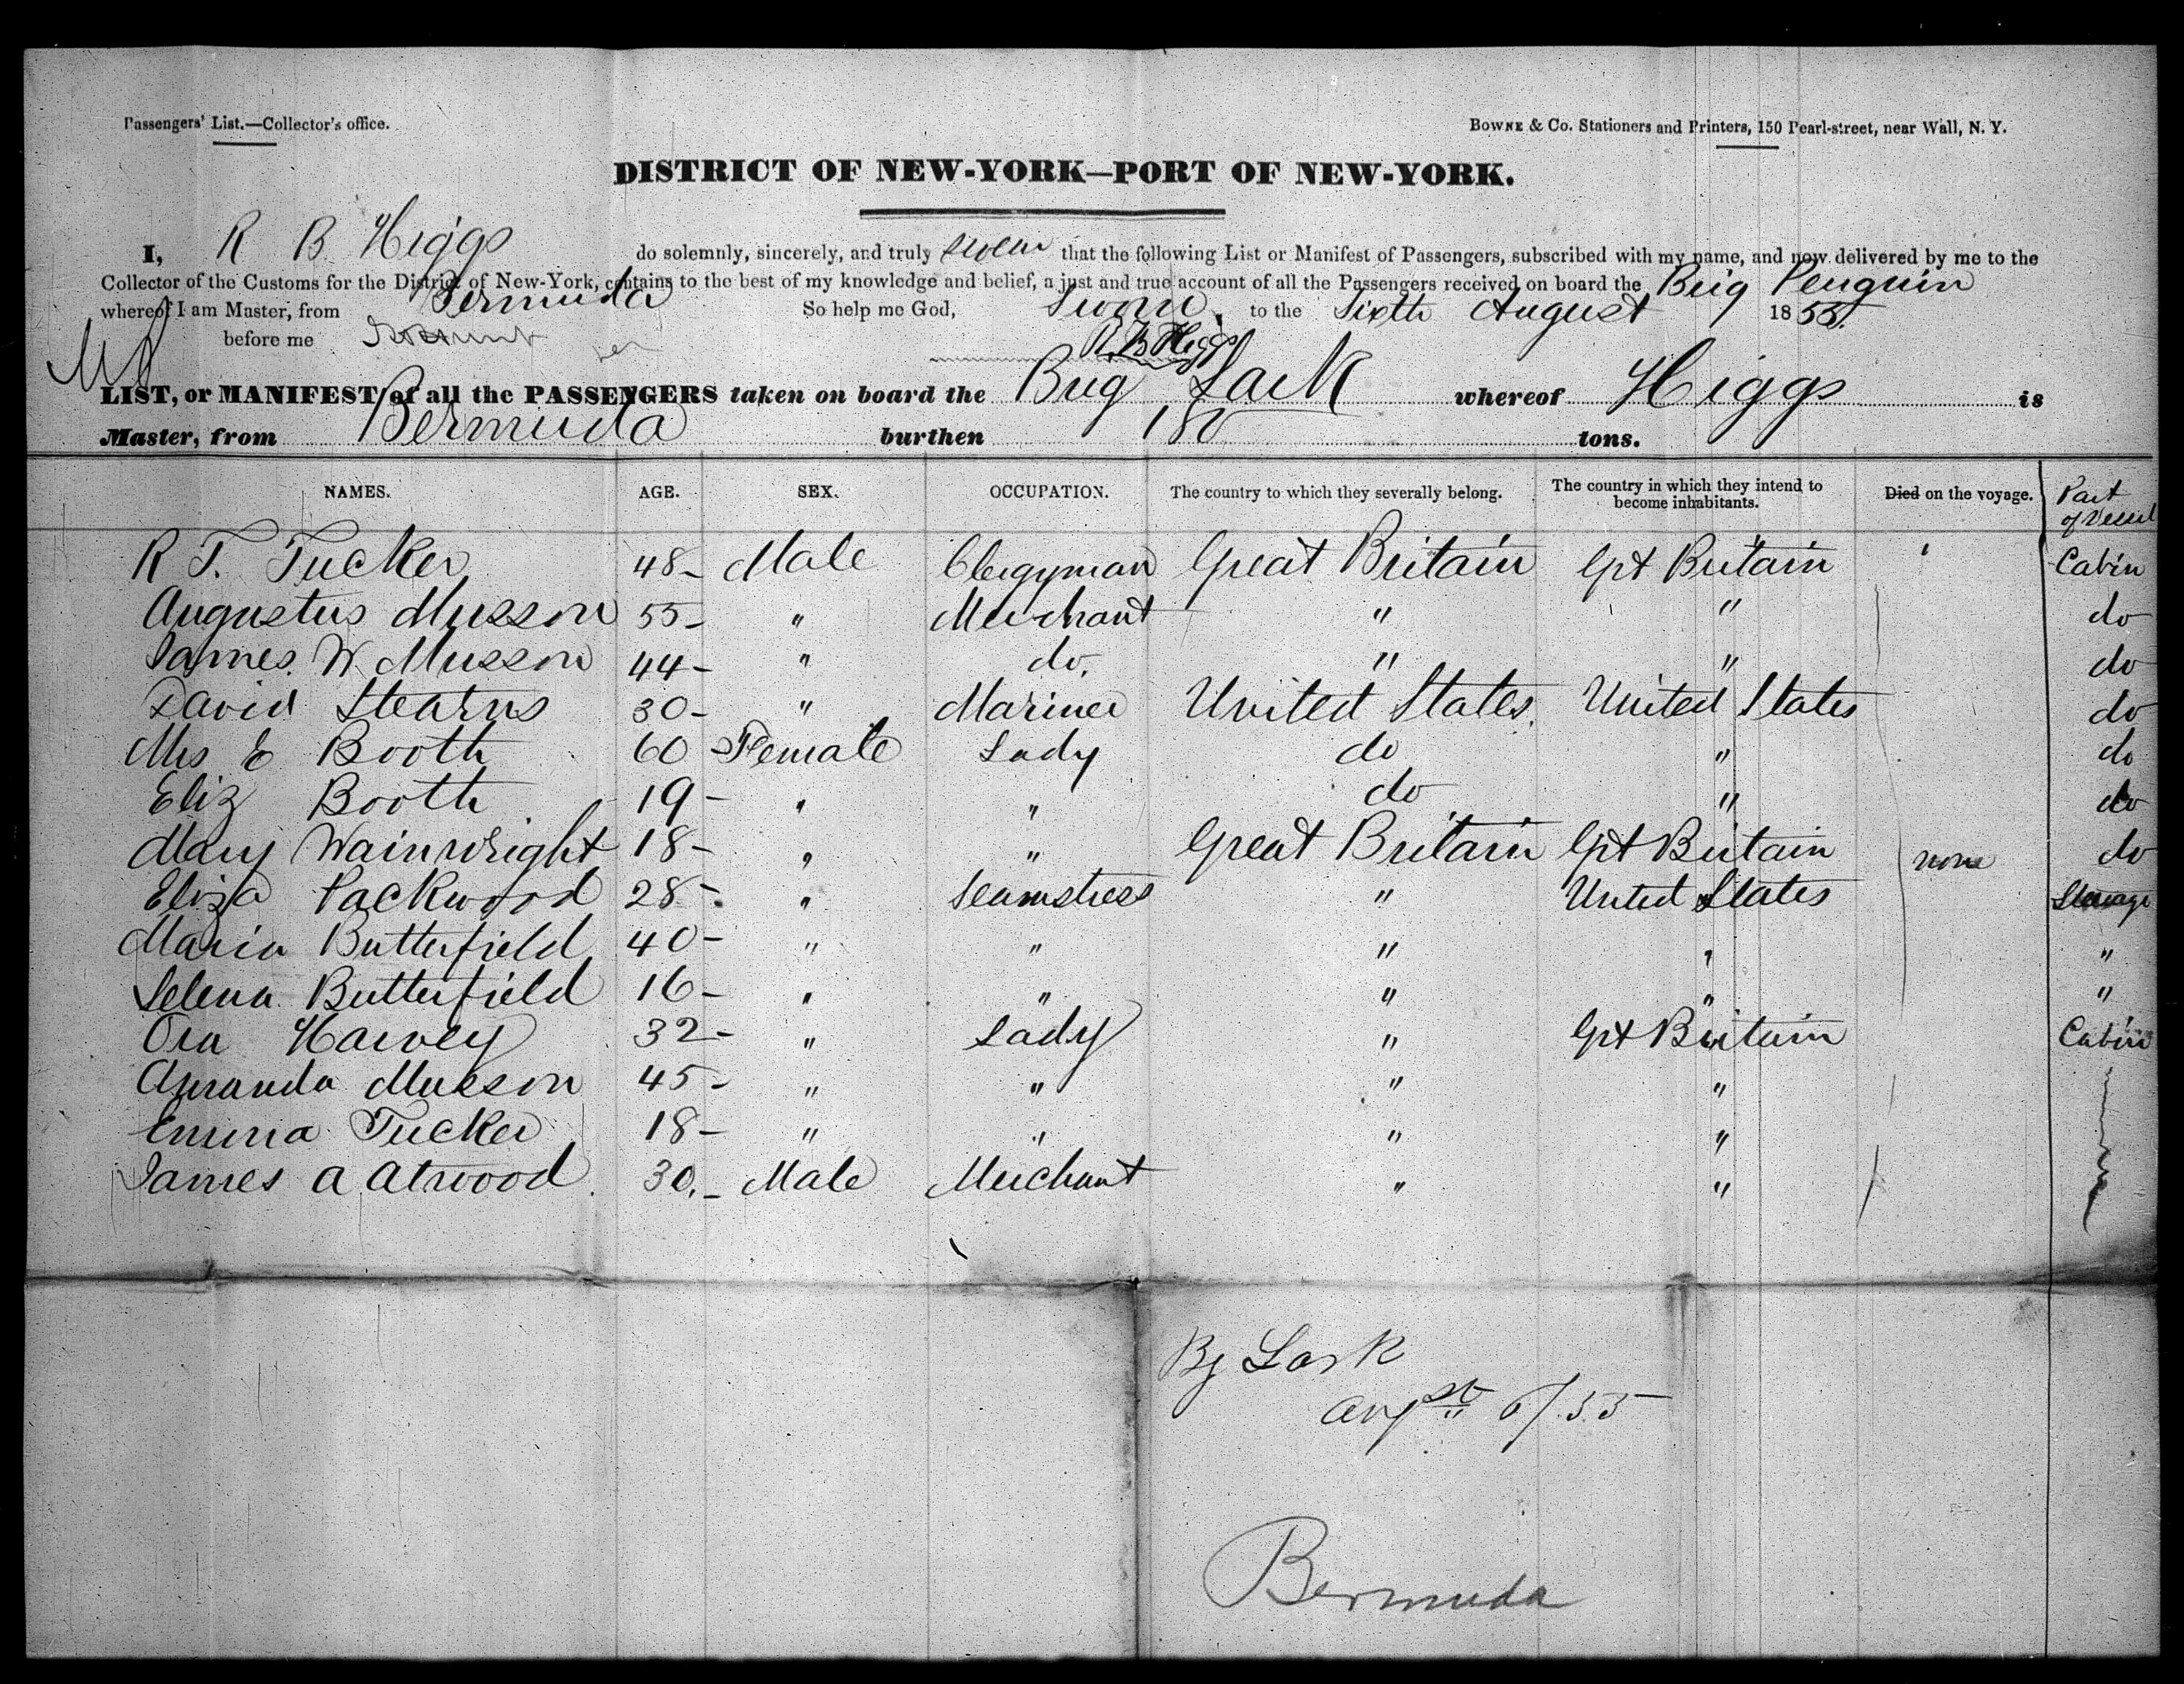 Passengers' List.—Collector's office.
Bowne & Co. Stationers and Printers, 150 Pearl-street, near Wall, N. Y.
DISTRICT OF NEW-YORK—PORT OF NEW-YORK.
I, R B Higgs do solemnly, sincerely, and truly swear that the following List or Manifest of Passengers, subscribed with my name, and now delivered by me to the
Collector of the Customs for the District of New-York, contains to the best of my knowledge and belief, a just and true account of all the Passengers received on board the Brig Penguin
whereof I am Master, from Bermuda So help me God, Sworn to the Sixth August 1855.
before me R. B Higgs
LIST, or MANIFEST of all the PASSENGERS taken on board the Brig Lark whereof Higgs is
Master, from Bermuda burthen 180 tons.
NAMES. AGE. SEX. OCCUPATION. The country to which they severally belong. The country in which they intend to become inhabitants. Died on the voyage. Part of Vessel
R T. Tucker 48 - Male Clergyman Great Britain Gt Britain Cabin
Augustus Musson 55 - " Merchant " " do
James W. Musson 44 - " do. " " do
David Stearns 30 - " Mariner United States. United States do
Mrs E Booth 60 - Female Lady do " do
Eliz Booth 19 - " " do " do
Mary Wainwright 18 - " " Great Britain Gt Britain none do
Eliza Packwood 28 - " Seamstress " United States Steerage
Maria Butterfield 40 - " " " " "
Selena Butterfield 16 - " " " " "
Ora Harvey 32 - " Lady " Gt Britain Cabin
Amanda Musson 45 - " " " "
Emma Tucker 18 - " " " "
James A Atwood 30. - Male Merchant " "
Bg Lark
Augst 6/55
Bermuda